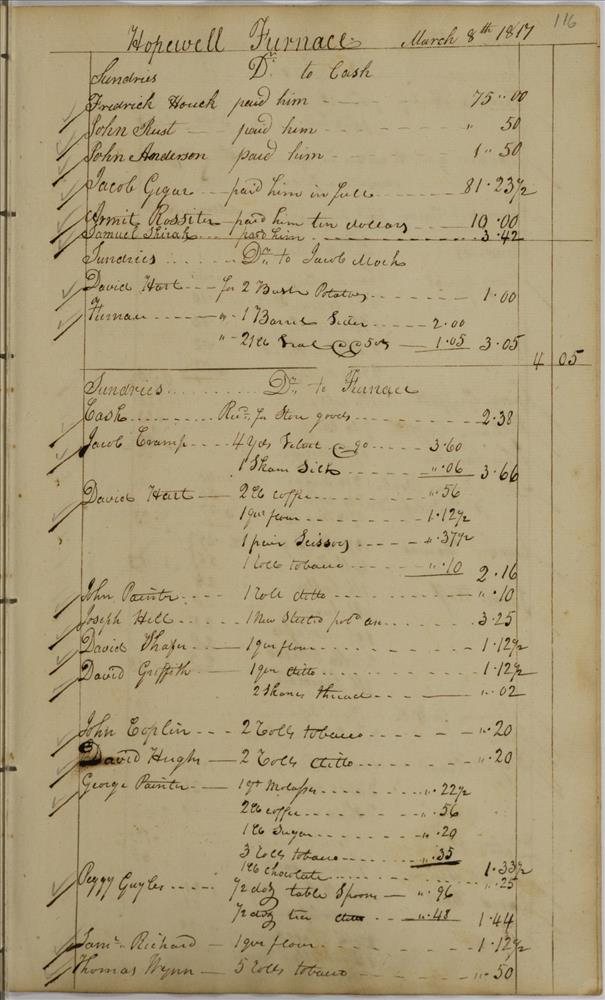 116
Hopewell Furnace March 8th 1817
Sundries Dr. to Cash
Fredrick Houck paid him 75..00
John Rust paid him " 50
John Anderson paid him 1..50
Jacob Gegar paid him in full 81.23 1/2
Armit Rossiter paid him ten dollars 10.00
Samuel Shirak paid him 3.42
Sundries Dr. to Jacob Mock
David Hart for 2 Bush Potatoes 1.00
Furnace " 1 Barrel Sider 2.00
" 21 lb Veal @ 5 cts 1.05 3.05
4 05
Sundries Dr. to Furnace
Cash Recd. for Store goods 2.38
Jacob Cramp 4 yds Velvet @ 90 3.60
1 Skain Silk ".06 3.66
David Hart 2 lb coffee ".56
1 qur flour 1.12 1/2
1 pair Scissors ".37 1/2
1 roll tobacco ".10 2.16
John Painter 1 roll ditto ".10
Joseph Hill 1 New Steeld pold ax 3.25
David Shafer 1 qur flour 1.12 1/2
David Griffith 1 qur ditto 1.12 1/2
2 Skanes thread ".02
John Coplin 2 rolls tobacco ".20
David Hughs 2 rolls ditto ".20
George Painter 1 qt Molasses ".22 1/2
2 lb coffee ".56
1 lb Sugar ".20
3 rolls tobacco ".35
1 lb chocolate 1.33 1/2
Peggy Guyles 1/2 doz table Spoons ".96 ".25
1/2 doz tea ditto ".48 1.44
Saml. Richard 1 qur flour 1.12 1/2
Thomas Wynn 5 rolls tobacco ".50